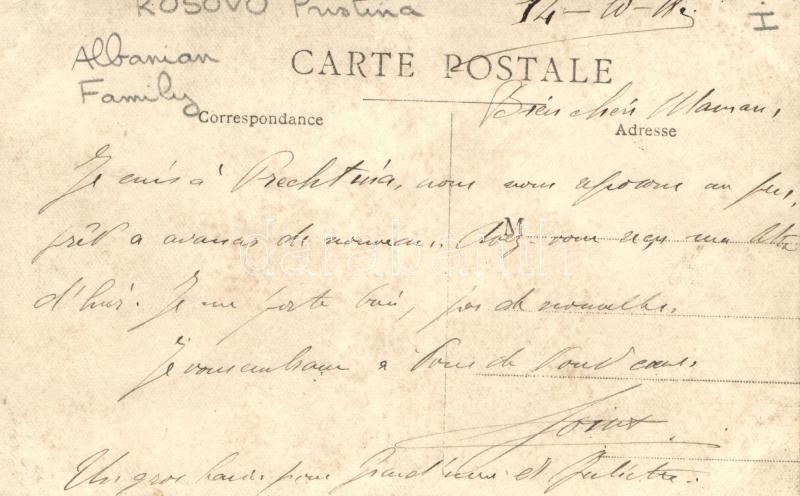 KOSOVO Pristina
Albanian
Family
CARTE POSTALE
Correspondance
Adresse
M
Bien chère Maman,
Je suis à Prechtina, nous nous reposons un peu,
prêt a avancer de nouveau. Avez vous reçu ma lettre
d'hier. Je me porte bien, pas de nouvelles.
Je vous embrasse a Tous de Tout cœur.
Un gros baiser pour Grand'mère et Juliette.
darabanth